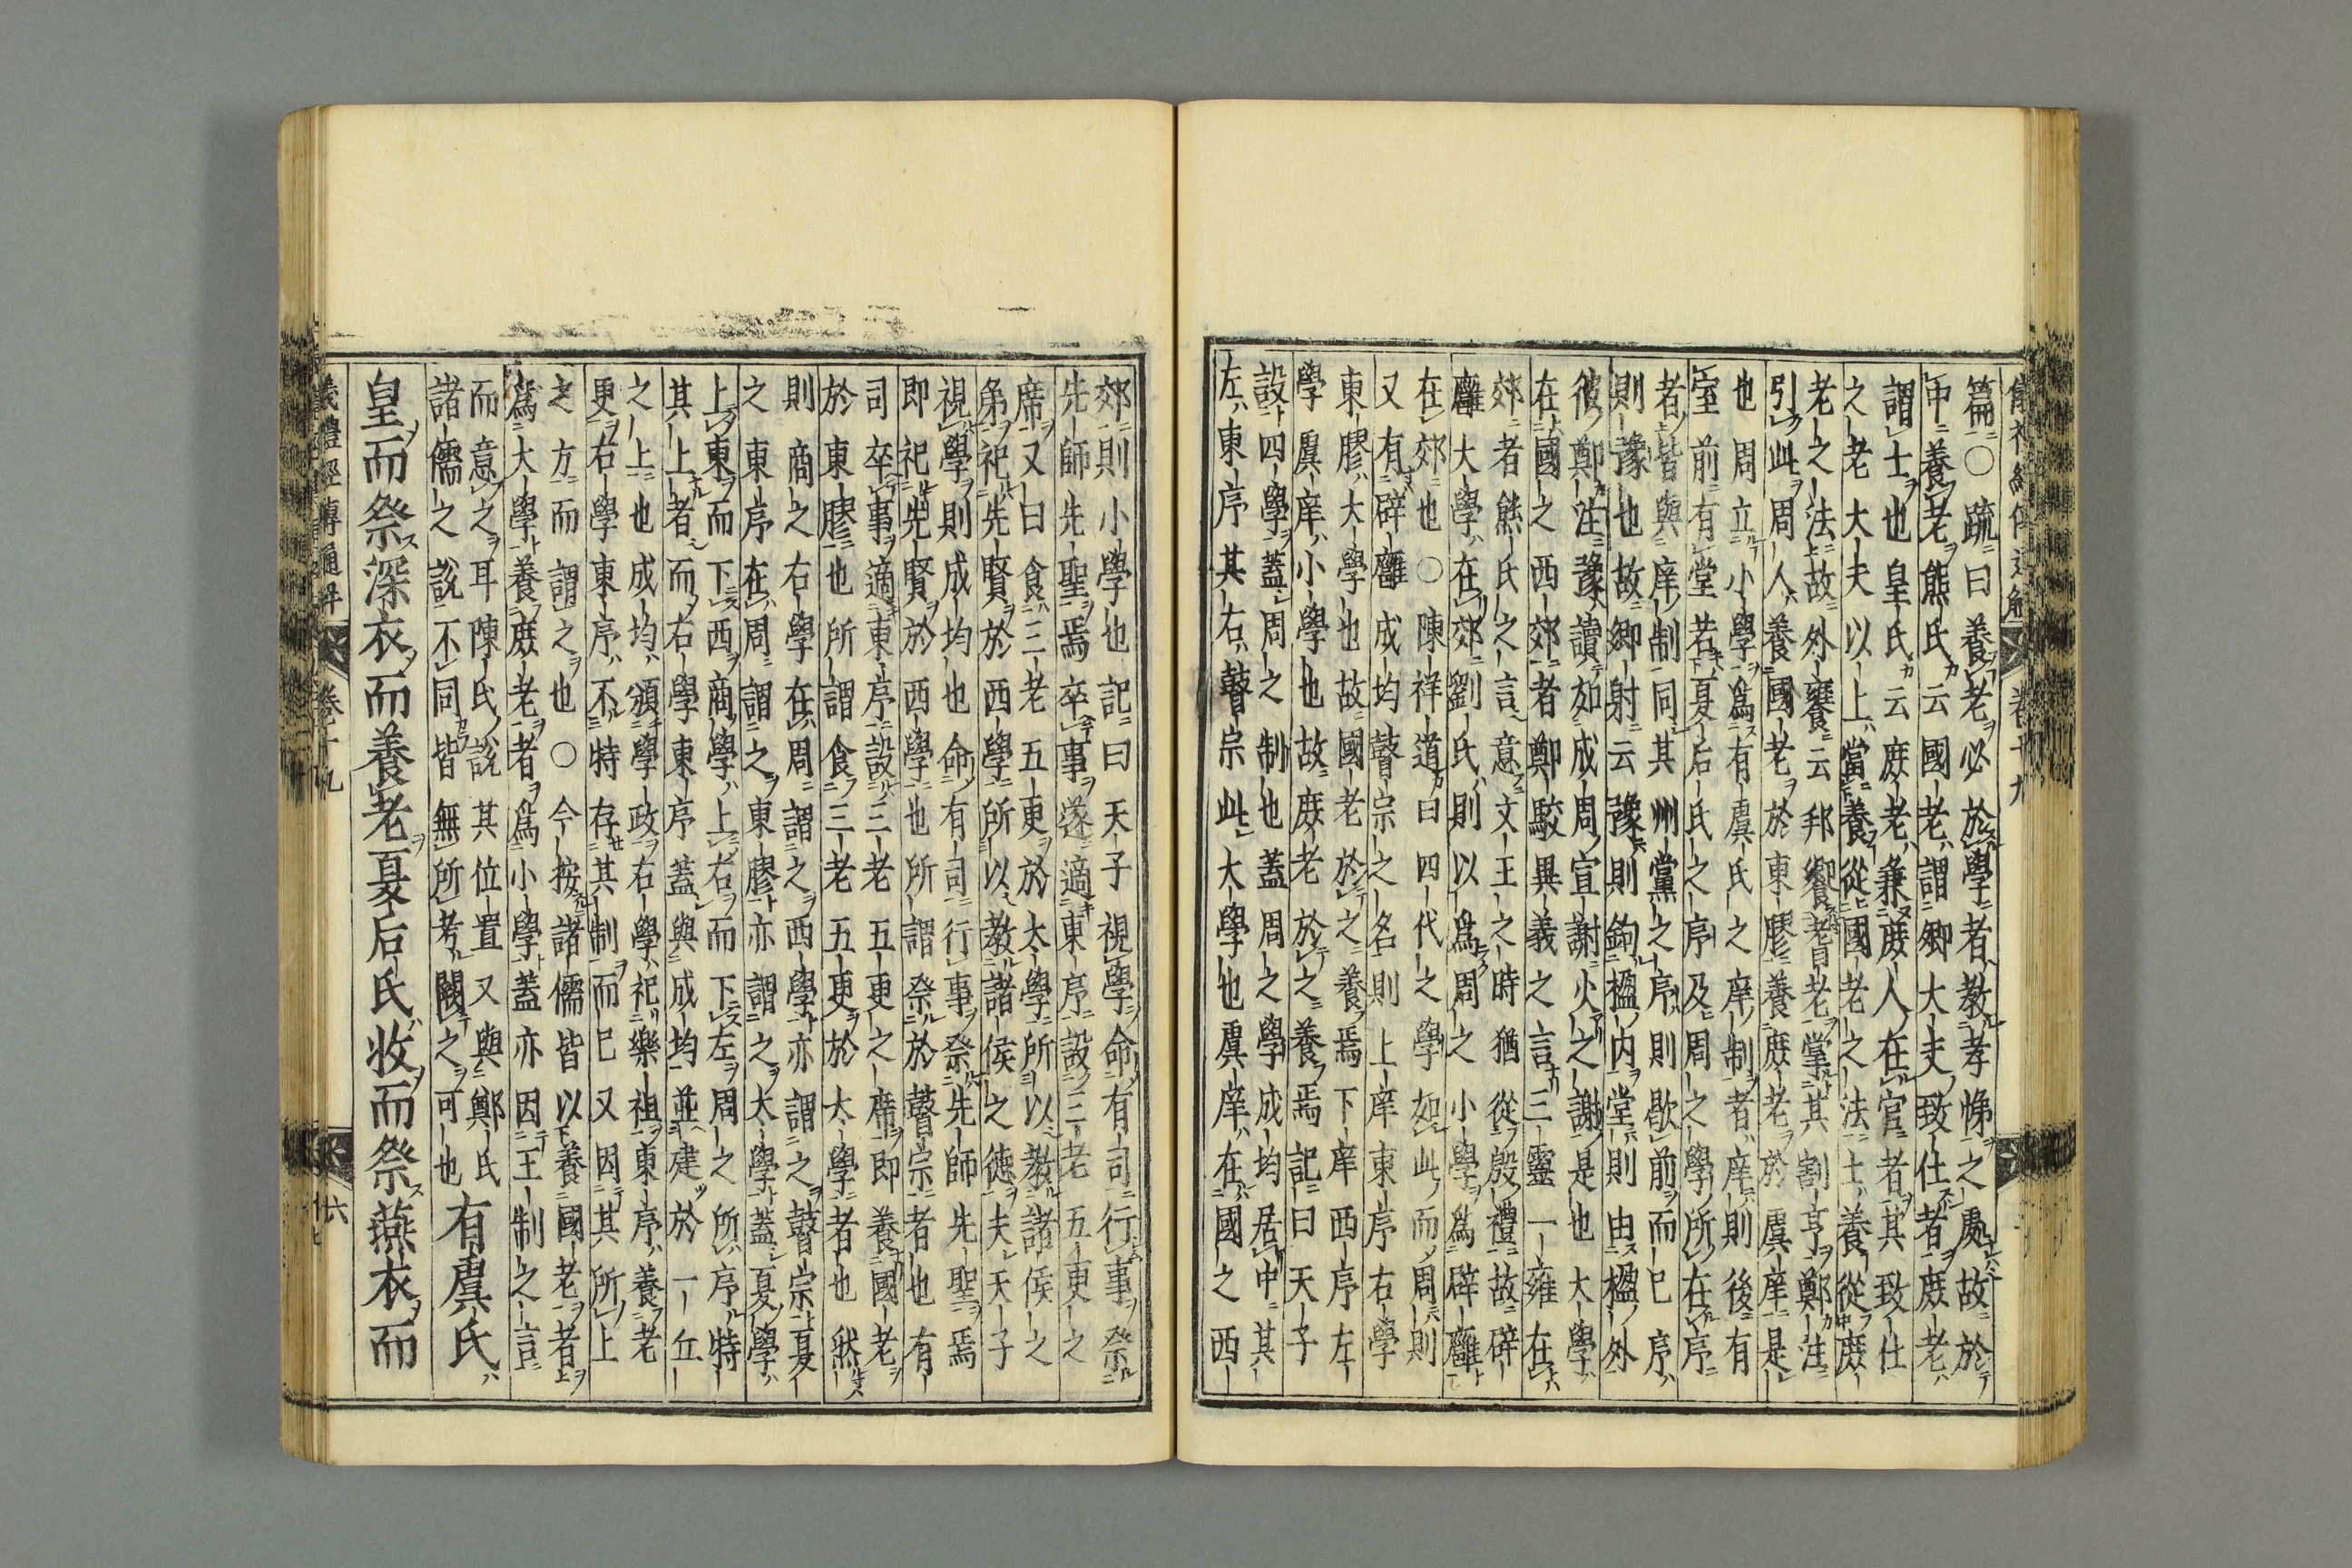 卷十九
篇○疏曰養老必於學者教孝悌之處故於
中養老熊氏云國老謂卿大夫致仕者庶老
謂士也皇氏云庶老兼庶人在官者其致仕
之老大夫以上當養從國老之法士養從庶
老之法故外饔云邦饗耆老掌其割亨鄭注
引此周人養國老於東膠養庶老於虞庠是
也周立小學爲有虞氏之庠制者庠則後有
室前有堂若夏后氏之序及周之學所在序
者皆與庠制同其州黨之序則歇前而已序
則豫也故鄉射云豫則鉤楹内堂則由楹外
彼鄭注豫讀如成周宣謝火之謝是也大學
在國之西郊者鄭駮異義之言三靈一雍在
郊者熊氏之言意文王之時猶從殷禮故辟
廱大學在郊劉氏則以爲周之小學爲辟廱
在郊也○陳祥道曰四代之學如此而周則
又有辟廱成均瞽宗之名則上庠東序右學
東膠大學也故國老於之養焉下庠西序左
學虞庠小學也故庶老於之養焉記曰天子
設四學蓋周之制也蓋周之學成均居中其
左東序其右瞽宗此大學也虞庠在國之西
郊則小學也記曰天子視學命有司行事祭
先師先聖焉卒事遂適東序設三老五更之
席又曰食三老五更於太學所以教諸侯之
弟祀先賢於西學所以教諸侯之德夫天子
視學則成均也命有司行事祭先師先聖焉
即祀先賢於西學也所謂祭於瞽宗者也有
司卒事適東序設三老五更之席即養國老
於東膠也所謂食三老五更於太學者也然
則商之右學在周謂之西學亦謂之瞽宗夏
之東序在周謂之東膠亦謂之太學蓋夏學
上東而下西商學上右而下左周之所序特
其上者而右學東序蓋與成均並建於一丘
之上也成均頒學政右學祀樂祖東序養老
更右學東序不特存其制而已又因其所上
之方而謂之也○今按諸儒皆以養國老者
爲大學養庶老者爲小學蓋亦因王制之言
而意之耳陳氏說其位置又與鄭氏
諸儒之說不同皆無所考闕之可也
有虞氏
皇而祭深衣而養老夏后氏收而祭燕衣而
儀禮經傳通解 卷十九 六